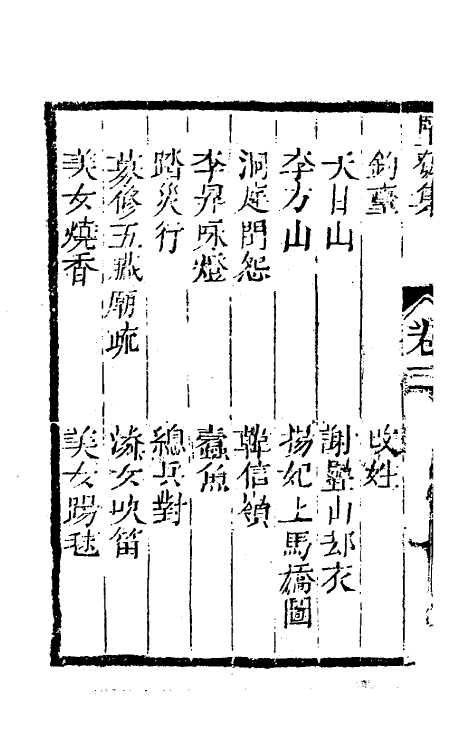 堅瓠集
卷三
釣臺　改姓
天目山　謝疊山却衣
李方山　楊妃上馬嬌圖
洞庭問怨　韓信嶺
李昇咏燈　蠹魚
踏災行　總兵對
募修五臟廟疏　漁女吹笛
美女燒香　美女踢毬